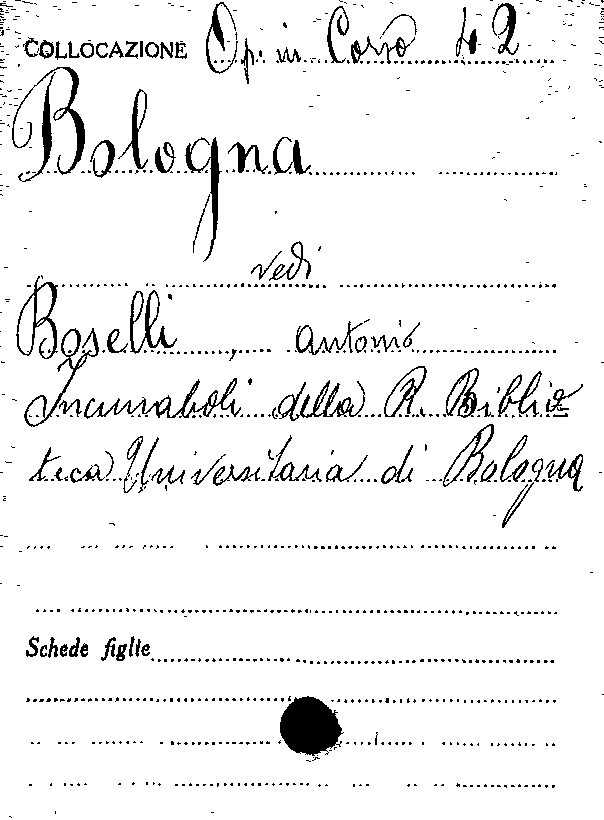 COLLOCAZIONE Op. in Corso 42
Bologna
vedi
Boselli, Antonio
Incunaboli della R. Biblio=
teca Universitaria di Bologna
Schede figlie